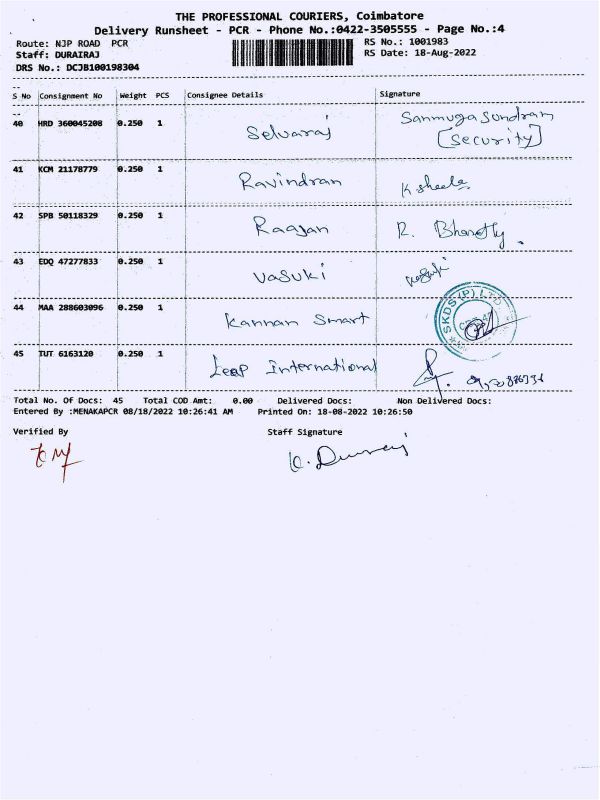 THE PROFESSIONAL COURIERS, Coimbatore
Delivery Runsheet - PCR - Phone No.:0422-3505555 - Page No.:4
Route: NJP ROAD PCR RS No.: 1001983
Staff: DURAIRAJ RS Date: 18-Aug-2022
DRS No.: DCJB100198304
S No Consignment No Weight PCS Consignee Details Signature
40 HRD 360045208 0.250 1 Selvaraj Sanmuga Sundram
[Security]
41 KCM 21178779 0.250 1 Ravindran K sheela
42 SPB 50118329 0.250 1 Raajan R. Bharathy.
43 EDQ 47277833 0.250 1 Vasuki Vasuki
44 MAA 288603096 0.250 1 Kannan Smart SKDS (P) LTD
45 TUT 6163120 0.250 1 Leap International
Total No. Of Docs: 45 Total COD Amt: 0.00 Delivered Docs: Non Delivered Docs:
Entered By :MENAKAPCR 08/18/2022 10:26:41 AM Printed On: 18-08-2022 10:26:50
Verified By Staff Signature
K. Durairaj